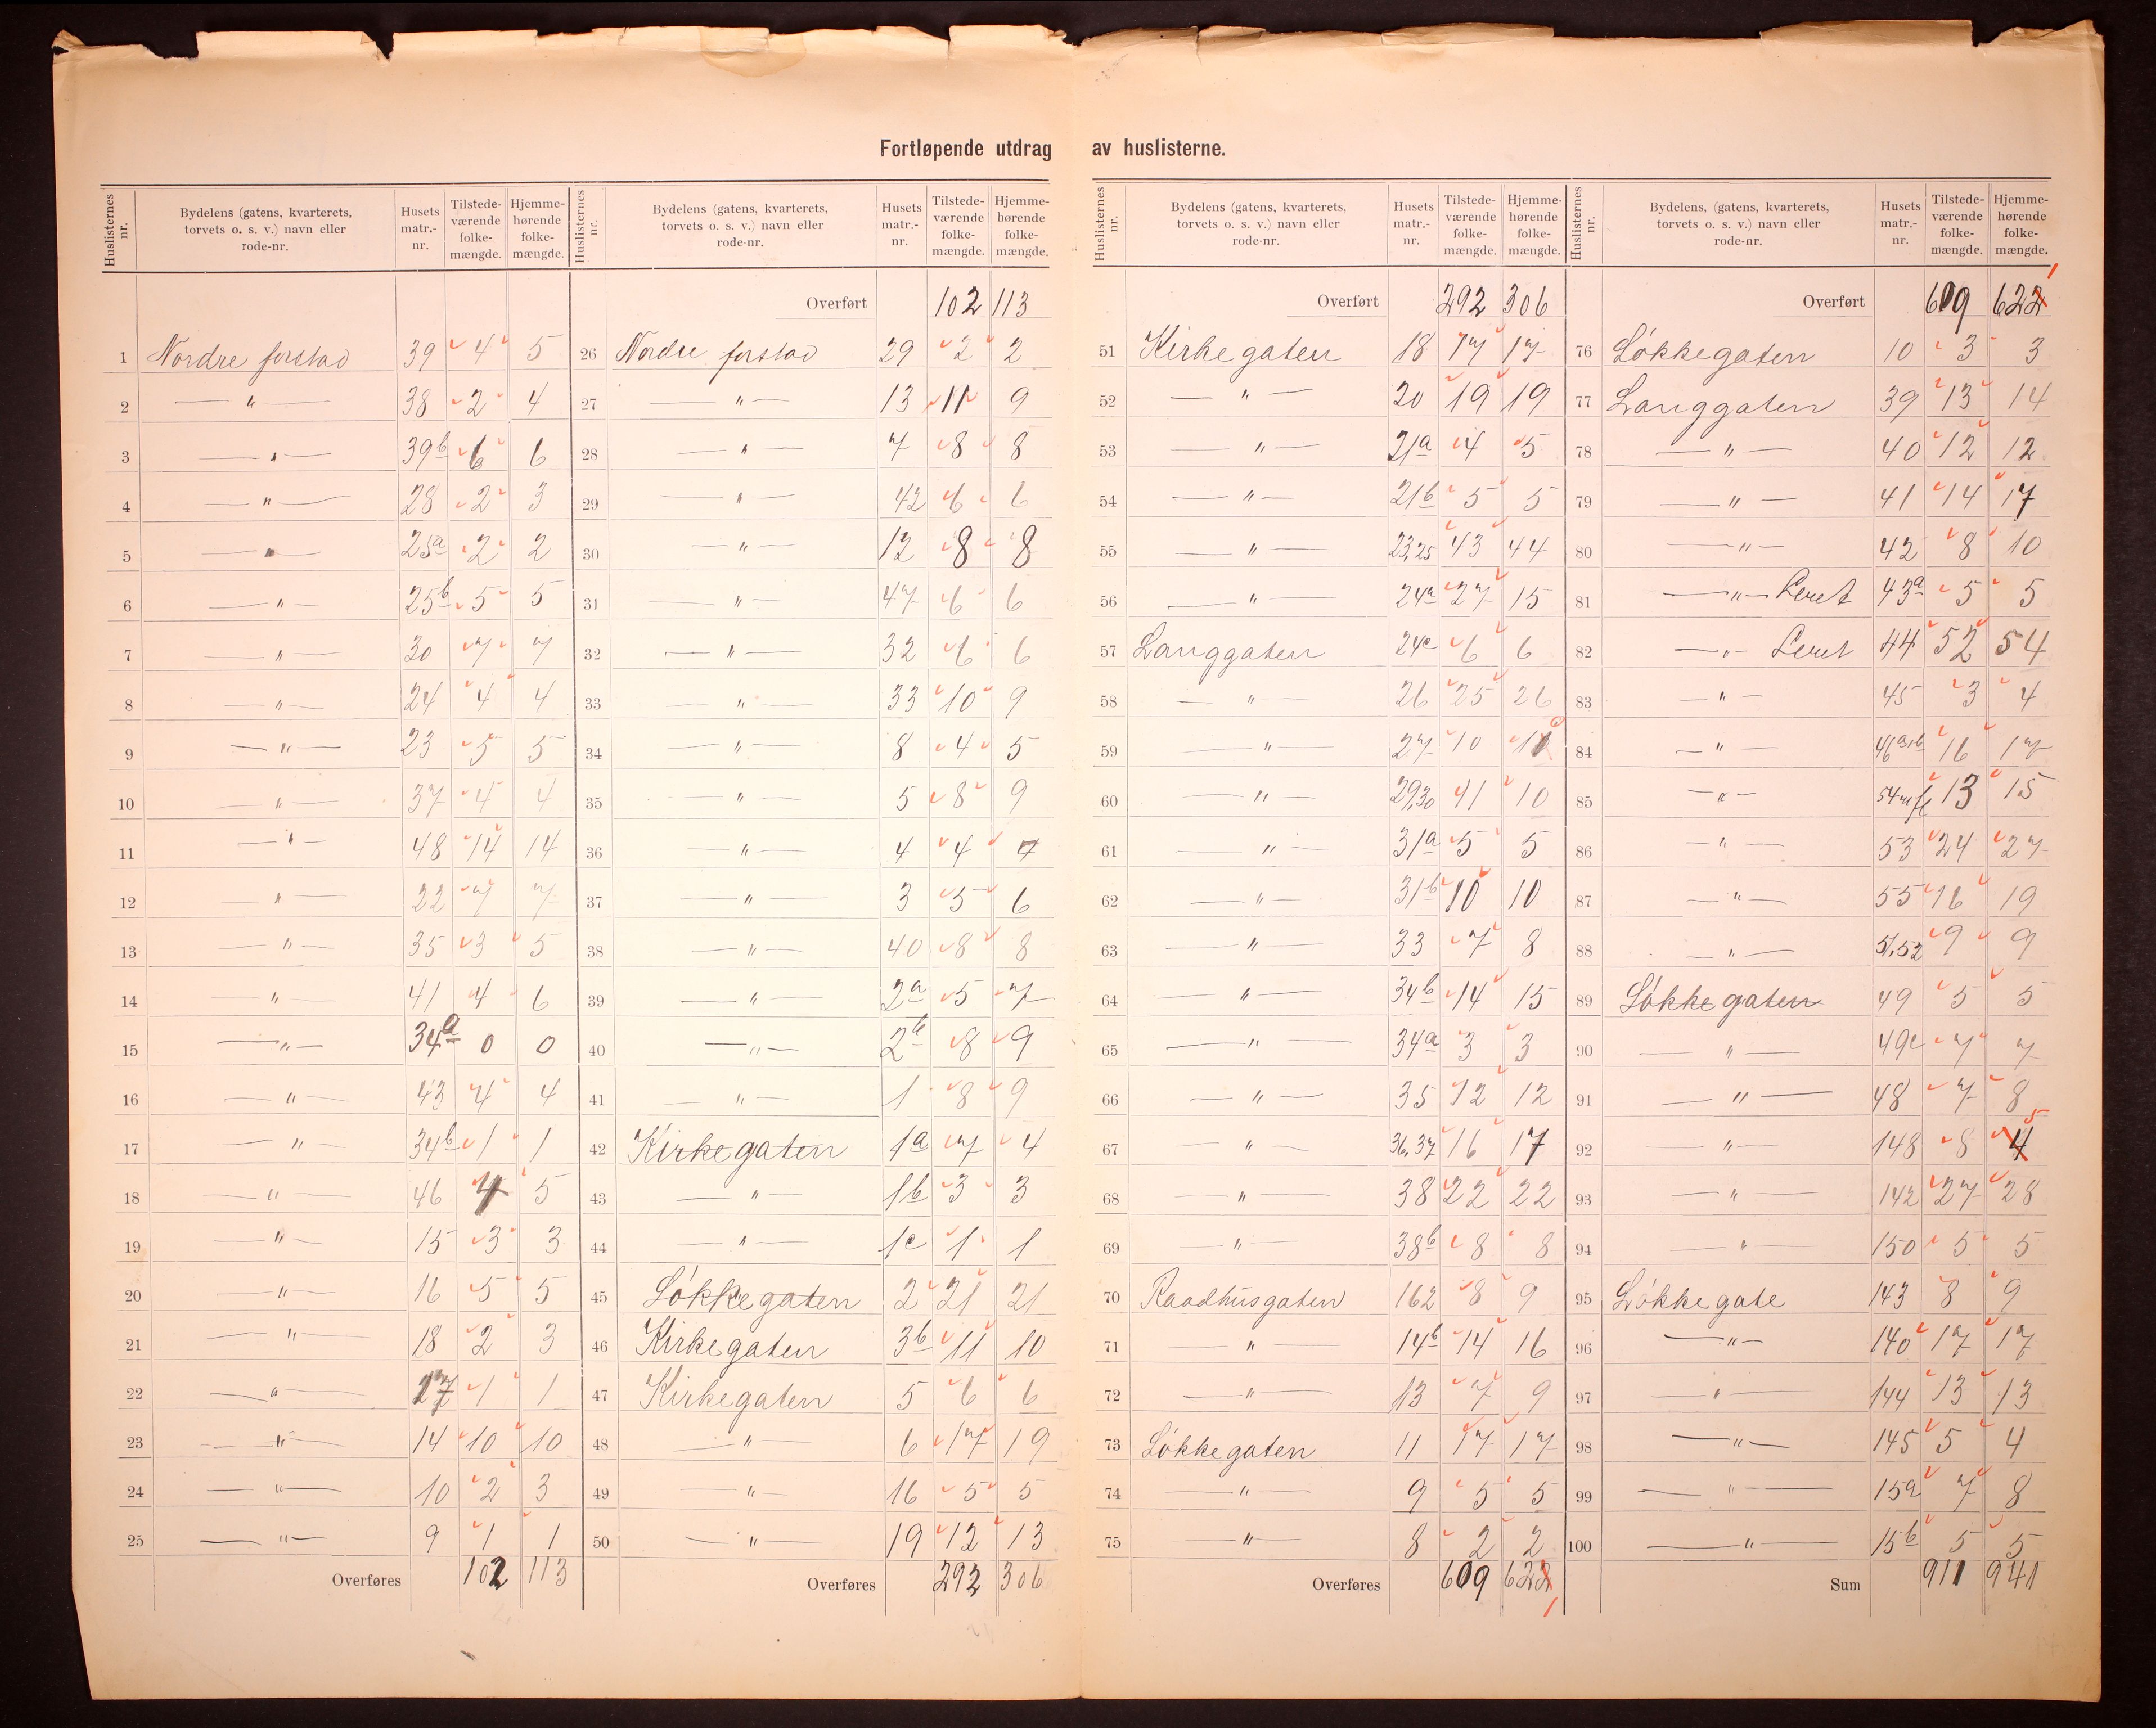 Fortløpende utdrag av huslisterne.
Huslisternes nr. | Bydelens (gatens, kvarterets, torvets o. s. v.) navn eller rode-nr. | Husets matr.-nr. | Tilstede-værende folke-mængde. | Hjemme-hørende folke-mængde.
1 Nordre forstad 39 4 5
2 —"— 38 2 4
3 —"— 39b 6 6
4 —"— 28 2 3
5 —"— 25a 2 2
6 —"— 25b 5 5
7 —"— 30 7 7
8 —"— 24 4 4
9 —"— 23 5 5
10 —"— 37 4 4
11 —"— 48 14 14
12 —"— 22 7 7
13 —"— 35 3 5
14 —"— 41 4 6
15 —"— 34a 0 0
16 —"— 43 4 4
17 —"— 34b 1 1
18 —"— 46 4 5
19 —"— 15 3 3
20 —"— 16 5 5
21 —"— 18 2 3
22 —"— 27 1 1
23 —"— 14 10 10
24 —"— 10 2 3
25 —"— 9 1 1
Overføres 102 113
Huslisternes nr. | Bydelens (gatens, kvarterets, torvets o. s. v.) navn eller rode-nr. | Husets matr.-nr. | Tilstede-værende folke-mængde. | Hjemme-hørende folke-mængde.
Overført 102 113
26 Nordre forstad 29 2 2
27 —"— 13 11 9
28 —"— 7 8 8
29 —"— 42 6 6
30 —"— 12 8 8
31 —"— 47 6 6
32 —"— 32 6 6
33 —"— 33 10 9
34 —"— 8 4 5
35 —"— 5 8 9
36 —"— 4 4 7
37 —"— 3 5 6
38 —"— 40 8 8
39 —"— 2a 5 7
40 —"— 2b 8 9
41 —"— 1 8 9
42 Kirkegaten 1a 7 4
43 —"— 1b 3 3
44 —"— 1c 1 1
45 Løkkegaten 2 21 21
46 Kirkegaten 3b 11 10
47 Kirkegaten 5 6 6
48 —"— 6 17 19
49 —"— 16 5 5
50 —"— 19 12 13
Overføres 292 306
Huslisternes nr. | Bydelens (gatens, kvarterets, torvets o. s. v.) navn eller rode-nr. | Husets matr.-nr. | Tilstede-værende folke-mængde. | Hjemme-hørende folke-mængde.
Overført 292 306
51 Kirkegaten 18 17 17
52 —"— 20 19 19
53 —"— 21a 4 5
54 —"— 21b 5 5
55 —"— 23,25 43 44
56 —"— 24a 27 15
57 Langgaten 24c 6 6
58 —"— 26 25 26
59 —"— 27 10 10
60 —"— 29,30 11 10
61 —"— 31a 5 5
62 —"— 31b 10 10
63 —"— 33 7 8
64 —"— 34b 14 15
65 —"— 34a 3 3
66 —"— 35 12 12
67 —"— 36,37 16 17
68 —"— 38 22 22
69 —"— 38b 8 8
70 Raadhusgaten 162 8 9
71 —"— 14b 14 16
72 —"— 13 7 9
73 Løkkegaten 11 17 17
74 —"— 9 5 5
75 —"— 8 2 2
Overføres 609 622 1
Huslisternes nr. | Bydelens, (gatens, kvarterets, torvets o. s. v.) navn eller rode-nr. | Husets matr.-nr. | Tilstede-værende folke-mængde. | Hjemme-hørende folke-mængde.
Overført 609 622 1
76 Løkkegaten 10 3 3
77 Langgaten 39 13 14
78 —"— 40 12 12
79 —"— 41 14 17
80 —"— 42 8 10
81 —"— Leret 43a 5 5
82 —"— Leret 44 52 54
83 —"— 45 3 4
84 —"— 46a+b 16 17
85 —"— 54 mfl 13 15
86 —"— 53 24 27
87 —"— 55 16 19
88 —"— 51,52 9 9
89 Løkkegaten 49 5 5
90 —"— 49c 7 7
91 —"— 48 7 8
92 —"— 148 8 4 5
93 —"— 142 27 28
94 —"— 150 5 5
95 Løkkegate 143 8 9
96 —"— 140 17 17
97 —"— 144 13 13
98 —"— 145 5 4
99 —"— 15a 7 8
100 —"— 15b 5 5
Sum 911 941